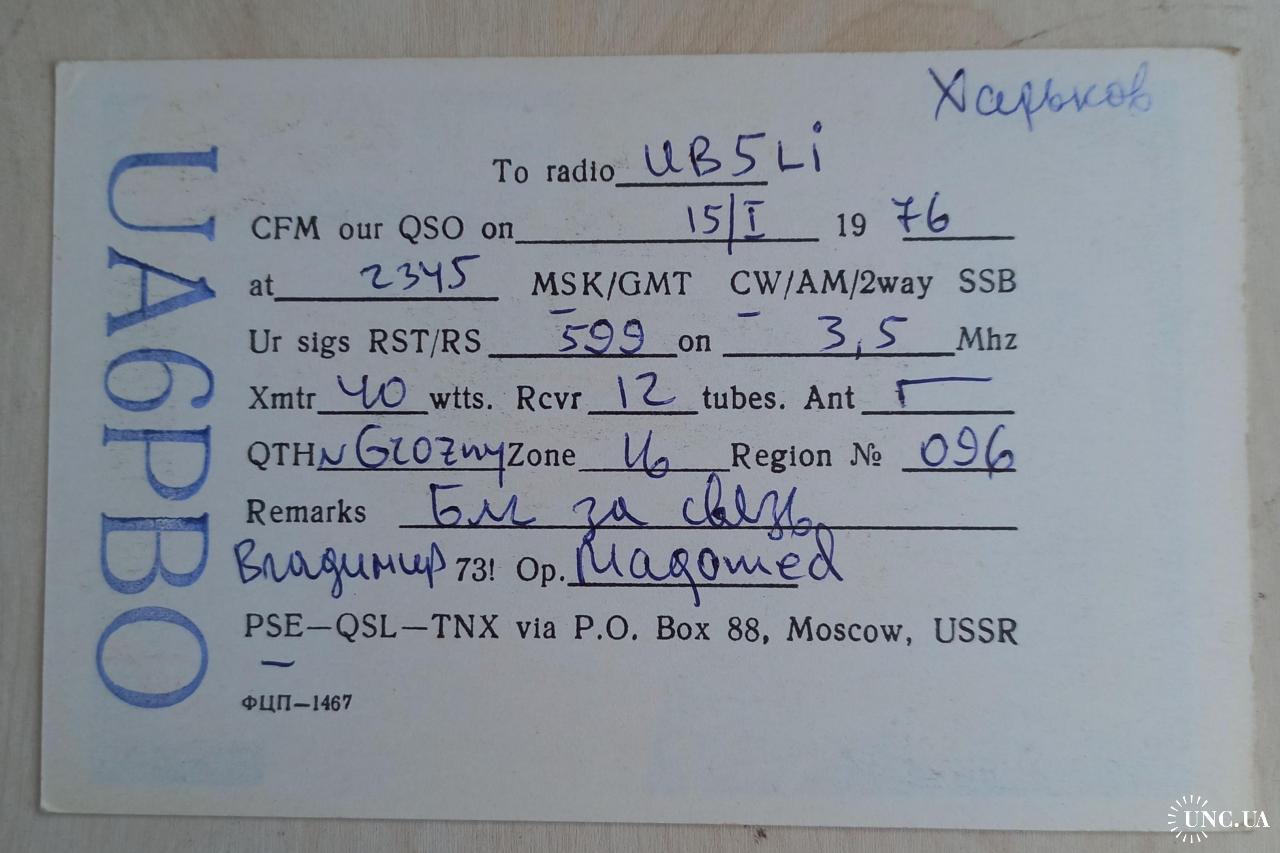 Харьков
UA6PBO
To radio UB5Li
CFM our QSO on 15/I 19 76
at 2345 MSK/GMT CW/AM/2way SSB
Ur sigs RST/RS 599 on 3,5 Mhz
Xmtr 40 wtts. Rcvr 12 tubes. Ant Г
QTH Grozny Zone 16 Region № 096
Remarks Блг за связь,
Владимир 73! Op. Magomed
PSE—QSL—TNX via P.O. Box 88, Moscow, USSR
ФЦП—1467
UNC.UA